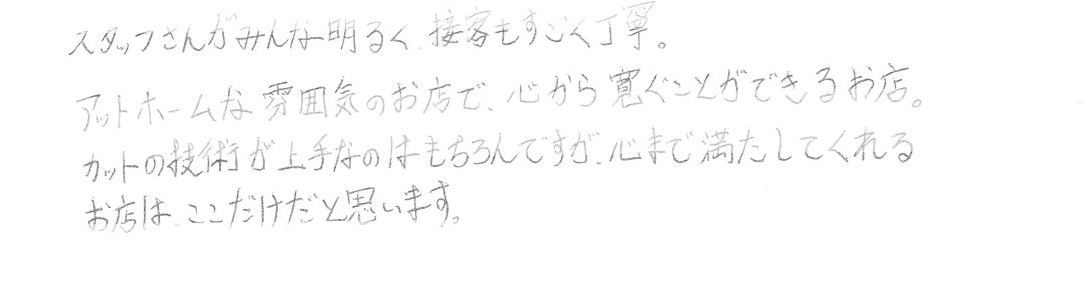 スタッフさんがみんな明るく、接客もすごく丁寧。
アットホームな雰囲気のお店で、心から寛ぐことができるお店。
カットの技術が上手なのはもちろんですが、心まで満たしてくれる
お店は、ここだけだと思います。